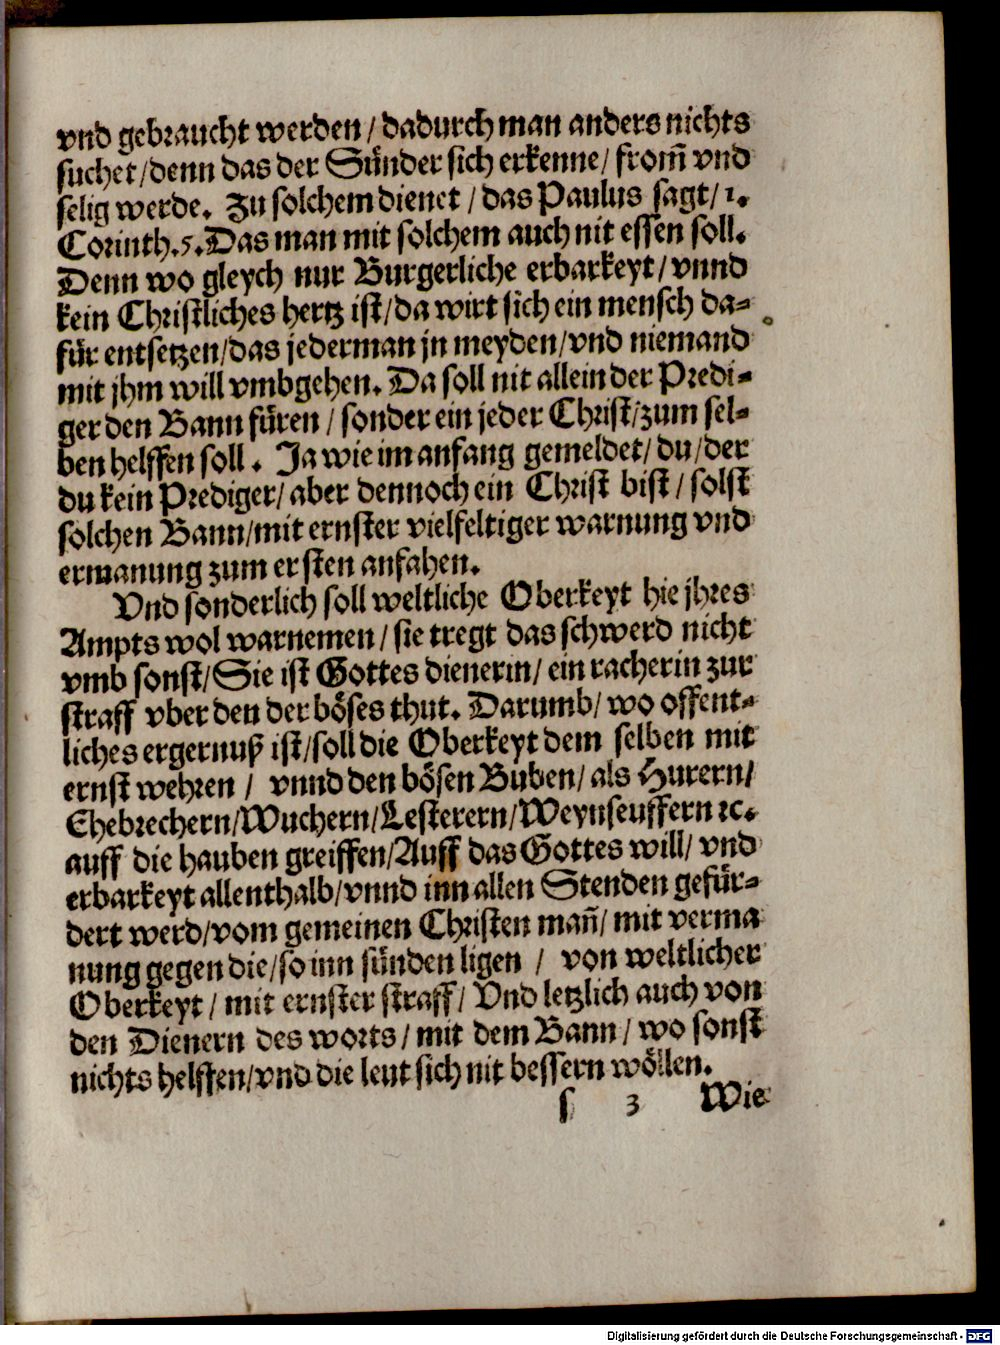 vnd gebraucht werden / dadurch man anders nichts
suchet / denn das der Sünder sich erkenne / from̃ vnd
selig werde. Zu solchem dienet / das Paulus sagt / 1.
Corinth. 5. Das man mit solchem auch nit essen soll.
Denn wo gleych nur Burgerliche erbarkeyt / vnnd
kein Christliches hertz ist / da wirt sich ein mensch da-
für entsetzen / das jederman jn meyden / vnd niemand
mit jhm will vmbgehen. Da soll nit allein der Predi-
ger den Bann füren / sonder ein jeder Christ / zum sel-
ben helffen soll. Ja wie im anfang gemeldet / du / der
du kein Prediger / aber dennoch ein Christ bist / solst
solchen Bann / mit ernster vielfeltiger warnung vnd
ermanung zum ersten anfahen.
Vnd sonderlich soll weltliche Oberkeyt hie jhres
Ampts wol warnemen / sie tregt das schwerd nicht
vmb sonst / Sie ist Gottes dienerin / ein racherin zur
straff vber den der böses thut. Darumb / wo offent-
liches ergernuß ist / soll die Oberkeyt dem selben mit
ernst wehren / vnnd den bösen Buben / als Hurern /
Ehebrechern / Wuchern / Lesterern / Weynseuffern ꝛc.
auff die hauben greiffen / Auff das Gottes will / vnd
erbarkeyt allenthalb / vnnd inn allen Stenden gefür-
dert werd / vom gemeinen Christen mañ / mit verma
nung gegen die / so inn sünden ligen / von weltlicher
Oberkeyt / mit ernster straff / Vnd letzlich auch von
den Dienern des worts / mit dem Bann / wo sonst
nichts helffen / vnd die leut sich nit bessern wöllen.
s 3 Wie
Digitalisierung gefördert durch die Deutsche Forschungsgemeinschaft - DFG